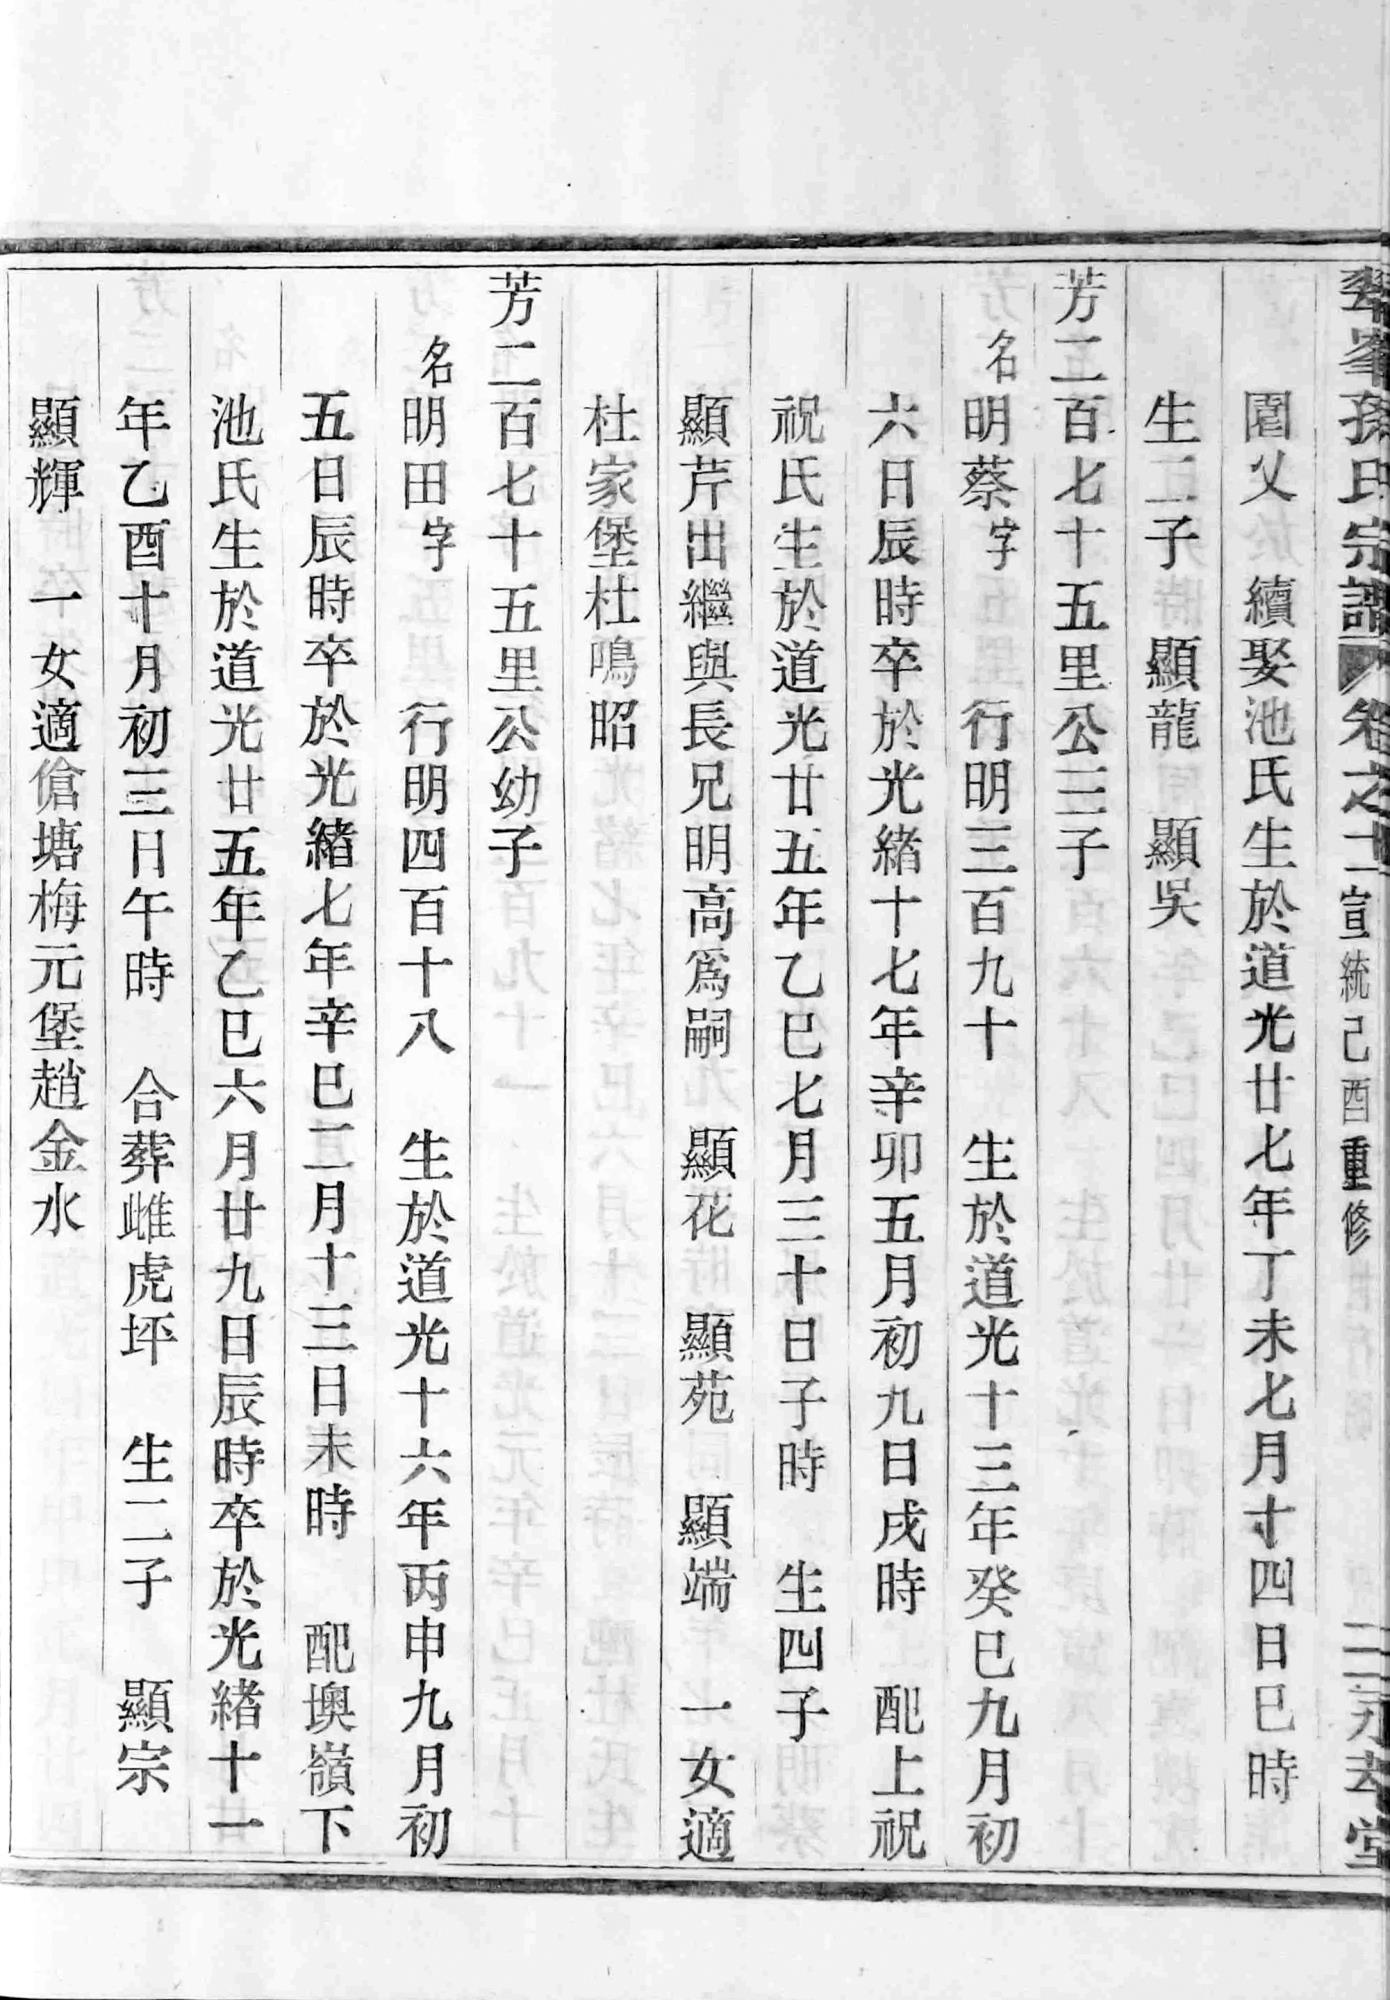 孫氏宗譜 卷之十一 宣統己酉重修
圍乂 續娶池氏生於道光廿七年丁未七月十四日巳時
生二子 顯龍 顯吳
芳二百七十五里公三子
名明蔡字 行明三百九十 生於道光十三年癸巳九月初
六日辰時卒於光緒十七年辛卯五月初九日戌時 配上祝
祝氏生於道光廿五年乙巳七月三十日子時 生四子
顯芹出繼與長兄明高爲嗣 顯花 顯苑 顯端 一女適
杜家堡杜鳴昭
芳二百七十五里公幼子
名明田字 行明四百十八 生於道光十六年丙申九月初
五日辰時卒於光緒七年辛巳二月十三日未時 配墺嶺下
池氏生於道光廿五年乙巳六月廿九日辰時卒於光緒十一
年乙酉十月初三日午時 合葬雌虎坪 生二子 顯宗
顯輝 一女適傖塘梅元堡趙金水